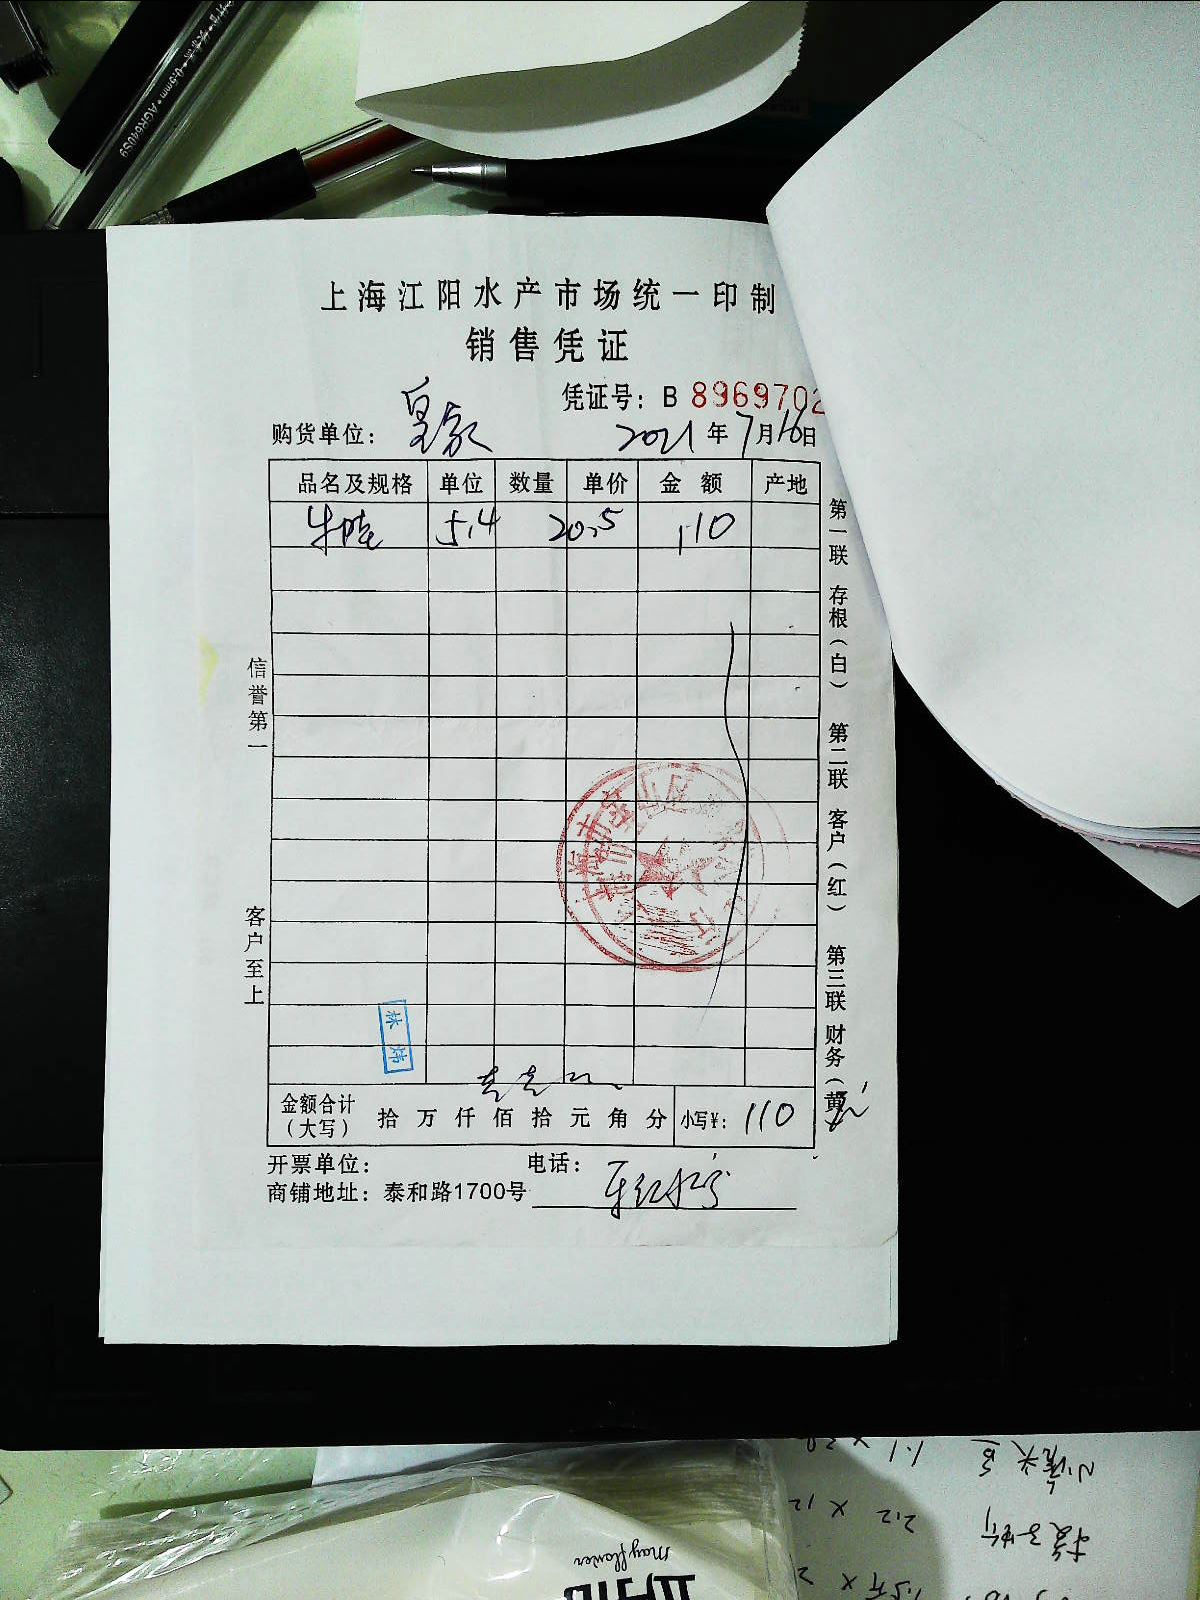 0.5mm·AGR640S9
上海江阳水产市场统一印制
销售凭证
凭证号：B 8969702
购货单位：皇家 2021年7月16日
品名及规格 单位 数量 单价 金额 产地
牛蛙 5.4 20.5 110
信誉第一
客户至上
第一联 存根（白） 第二联 客户（红） 第三联 财务（黄）
林炜
金额合计（大写） 拾万仟佰拾元角分 小写¥：110
开票单位： 电话：
商铺地址：泰和路1700号
Mayflower
五月花